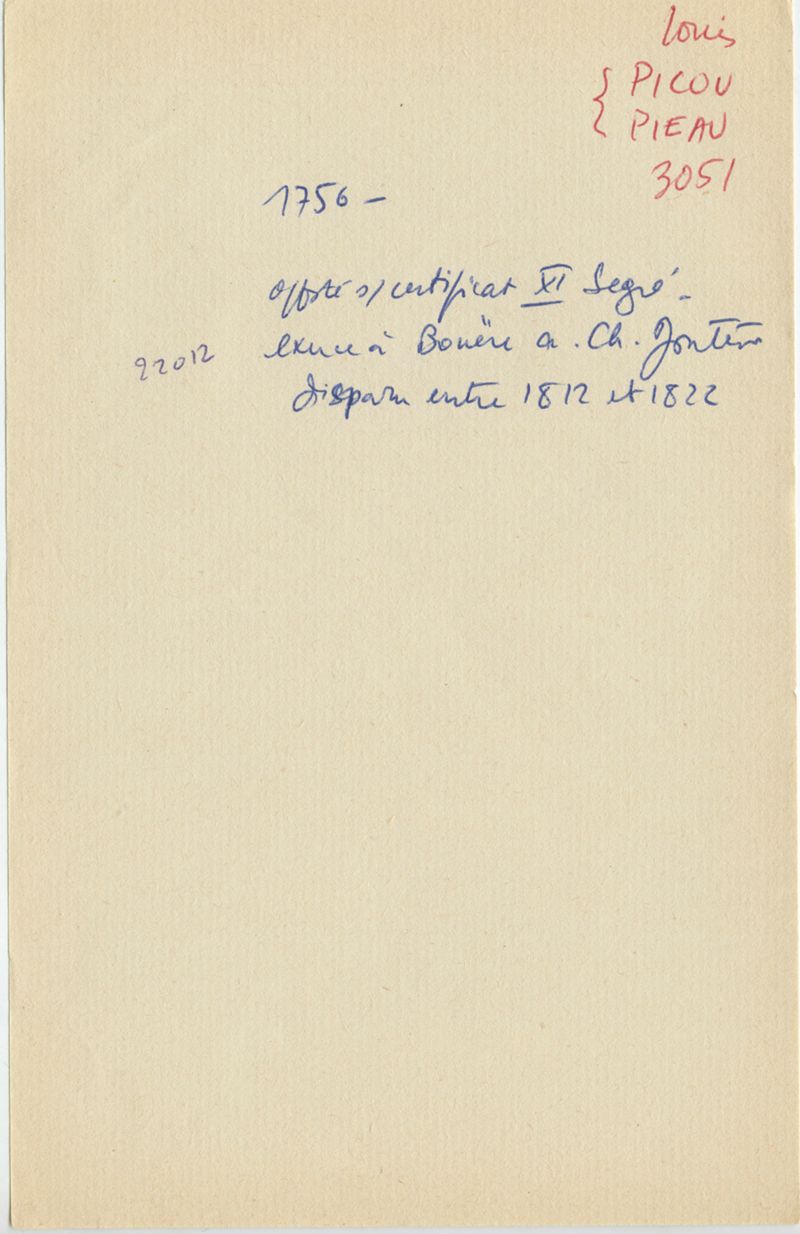 Louis
PICOU
PIEAU
3051
1756 -
s/certificat XI Segré -
exerce à Bouère a. Ch. Gontier
22012
disparu entre 1812 et 1822